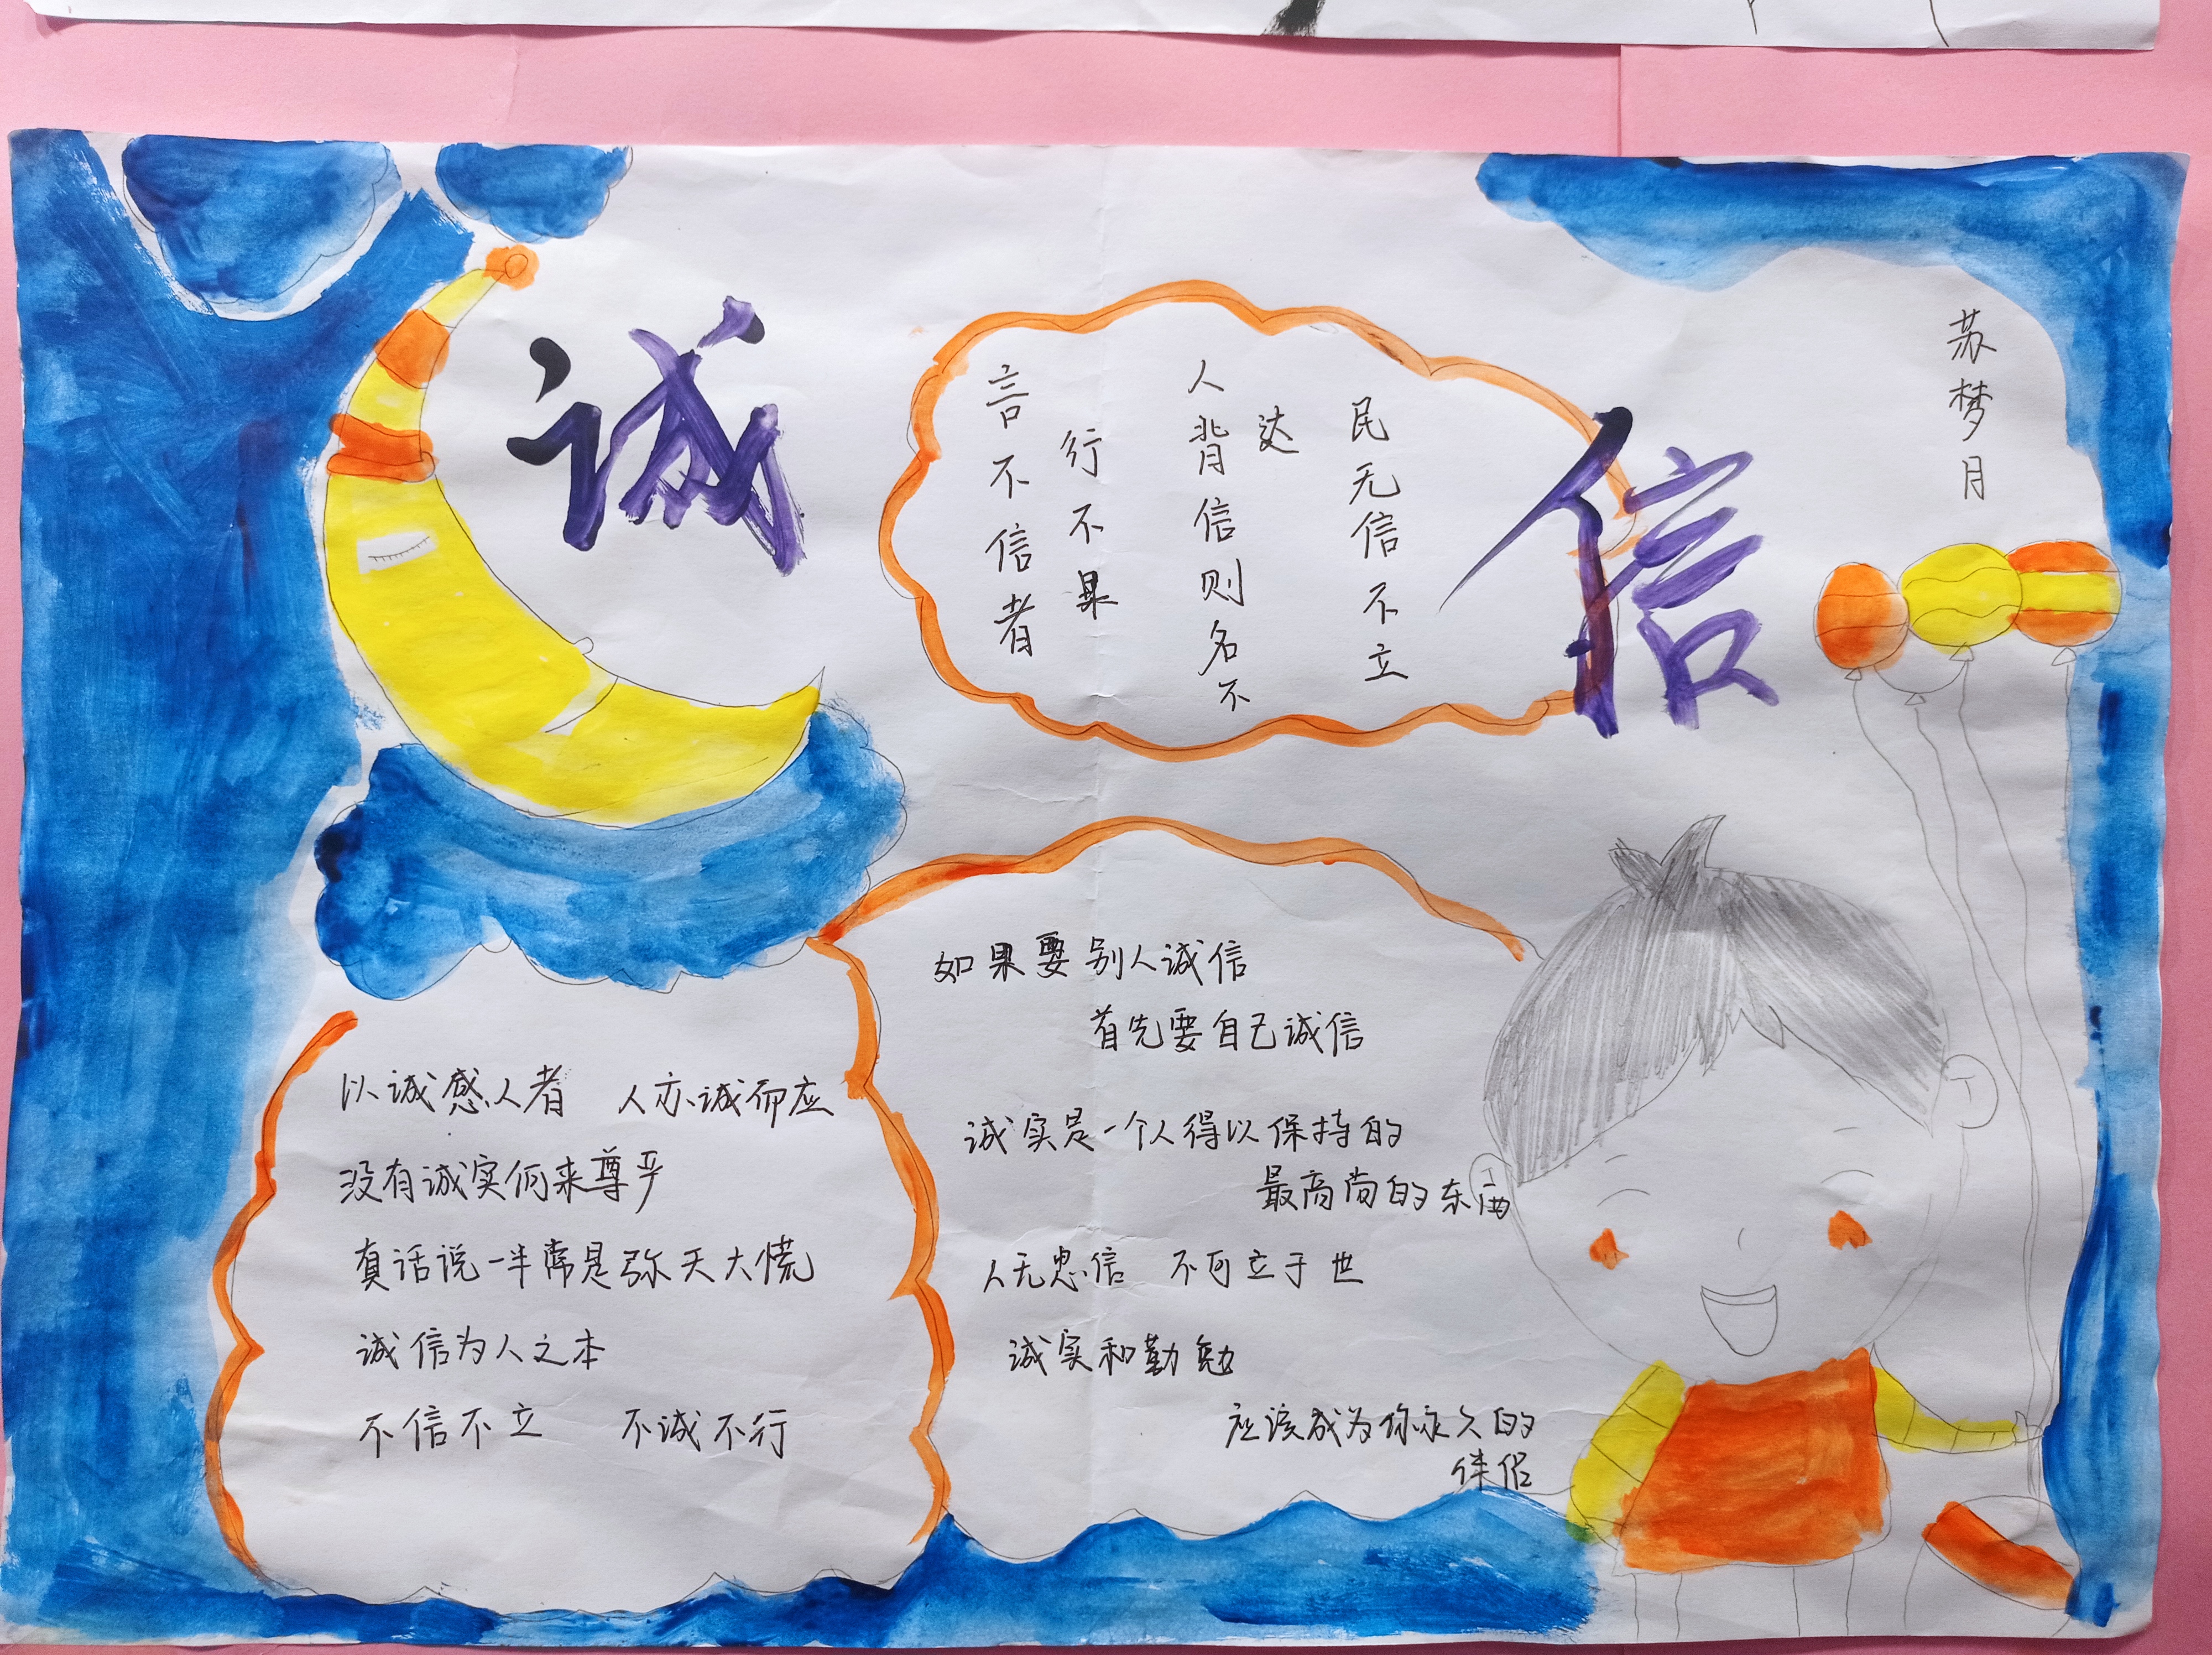 诚
信
苏梦月
言不信者
行不果
人背信则名不
达
民无信不立
以诚感人者 人亦诚而应
没有诚实何来尊严
真话说一半常是弥天大慌
诚信为人之本
不信不立 不诚不行
如果要别人诚信
首先要自己诚信
诚实是一个人得以保持的
最高尚的东西
人无忠信 不可立于世
诚实和勤勉
应该成为你永久的
伴侣